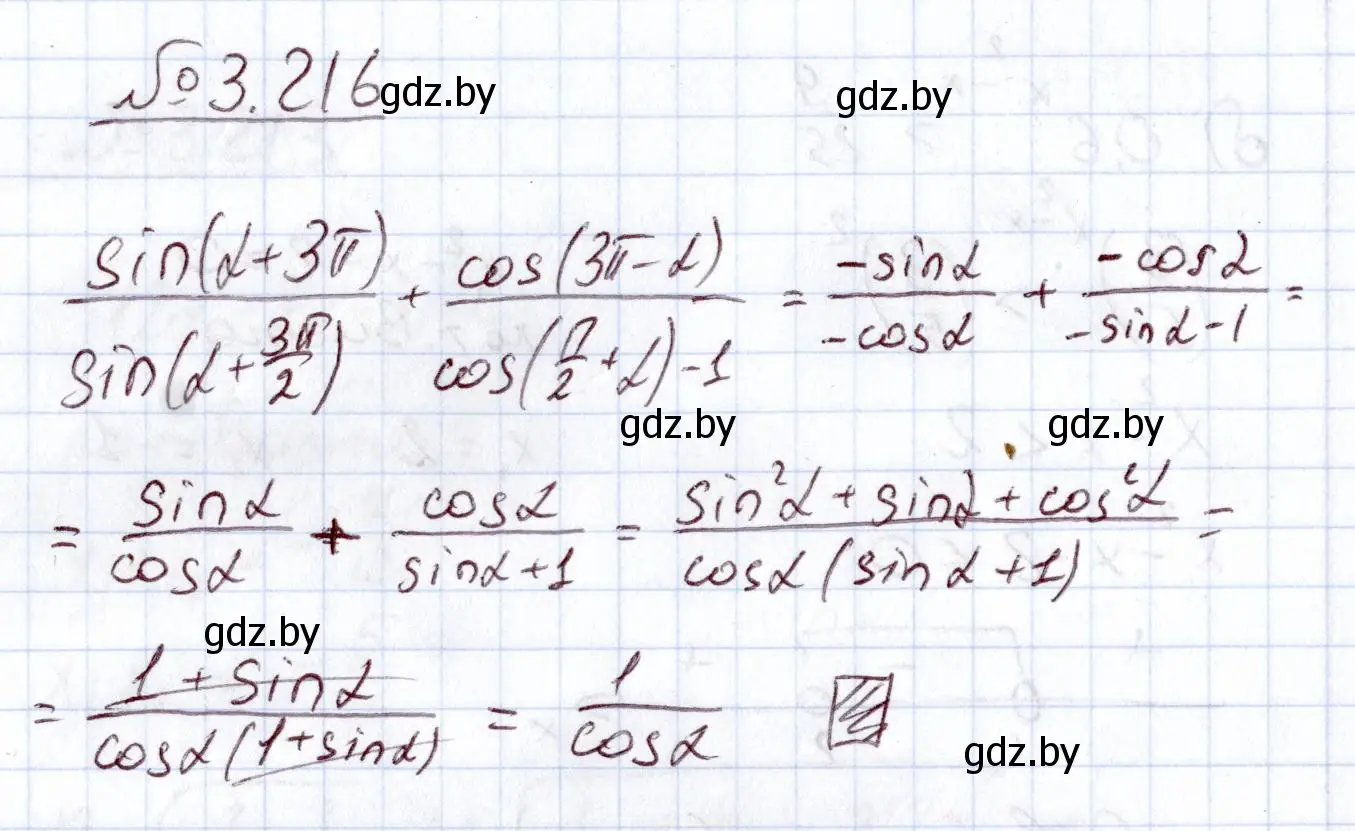 № 3.216 gdz.by gdz.by
sin(α+3π)/sin(α+3π/2) + cos(3π-α)/cos(π/2+α)-1 = -sinα/-cosα + -cosα/-sinα-1 =
gdz.by gdz.by
= sinα/cosα + cosα/sinα+1 = sin²α + sinα + cos²α/cosα(sinα+1) =
gdz.by
= 1+sinα/cosα(1+sinα) = 1/cosα
gdz.by